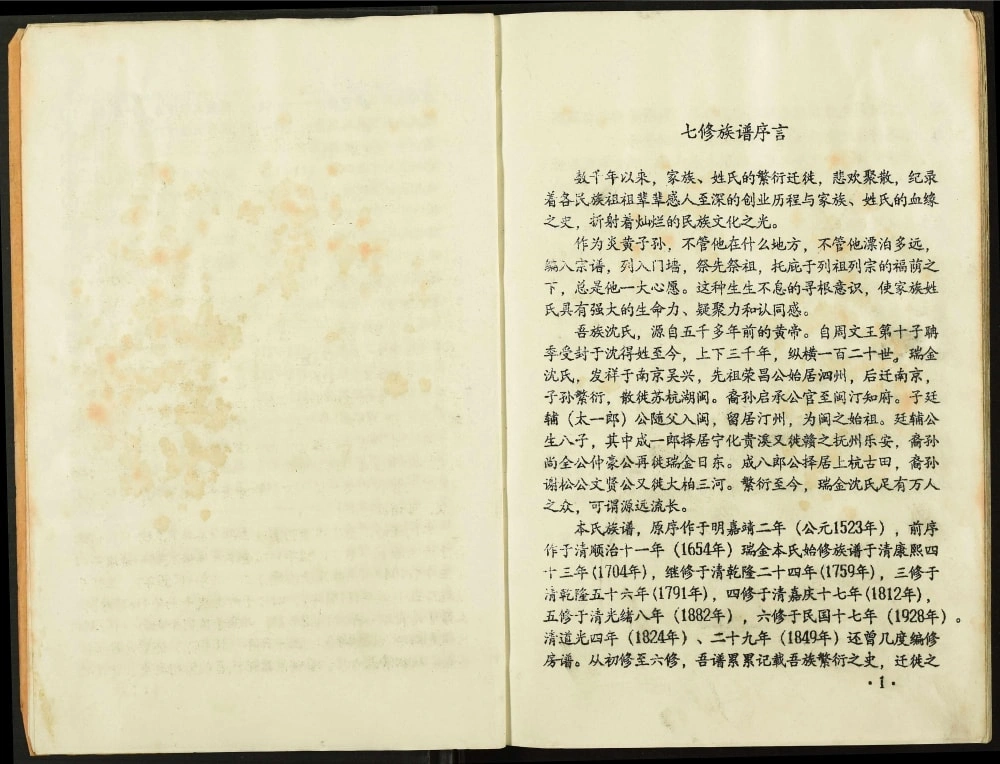 七修族谱序言
数千年以来，家族、姓氏的繁衍迁徙，悲欢聚散，纪录
着各民族祖祖辈辈感人至深的创业历程与家族、姓氏的血缘
之史，折射着灿烂的民族文化之光。
作为炎黄子孙，不管他在什么地方，不管他漂泊多远，
编入宗谱，列入门墙，祭先祭祖，托庇于列祖列宗的福荫之
下，总是他一大心愿。这种生生不息的寻根意识，使家族姓
氏具有强大的生命力、疑聚力和认同感。
吾族沈氏，源自五千多年前的黄帝。自周文王第十子聃
季受封于沈得姓至今，上下三千年，纵横一百二十世。瑞金
沈氏，发祥于南京吴兴，先祖荣昌公始居泗州，后迁南京，
子孙繁衍，散徙苏杭湖闽。裔孙启承公官至闽汀知府。子廷
辅（太一郎）公随父入闽，留居汀州，为闽之始祖。廷辅公
生八子，其中成一郎择居宁化贵溪又徙赣之抚州乐安，裔孙
尚全公仲豪公再徙瑞金日东。成八郎公择居上杭古田，裔孙
谢松公文贤公又徙大柏三河。繁衍至今，瑞金沈氏足有万人
之众，可谓源远流长。
本氏族谱，原序作于明嘉靖二年（公元1523年），前序
作于清顺治十一年（1654年）瑞金本氏始修族谱于清康熙四
十三年(1704年)，继修于清乾隆二十四年(1759年)，三修于
清乾隆五十六年(1791年)，四修于清嘉庆十七年(1812年)，
五修于清光绪八年（1882年），六修于民国十七年（1928年）。
清道光四年（1824年）、二十九年（1849年）还曾几度编修
房谱。从初修至六修，吾谱累累记载吾族繁衍之史，迁徙之
·1·